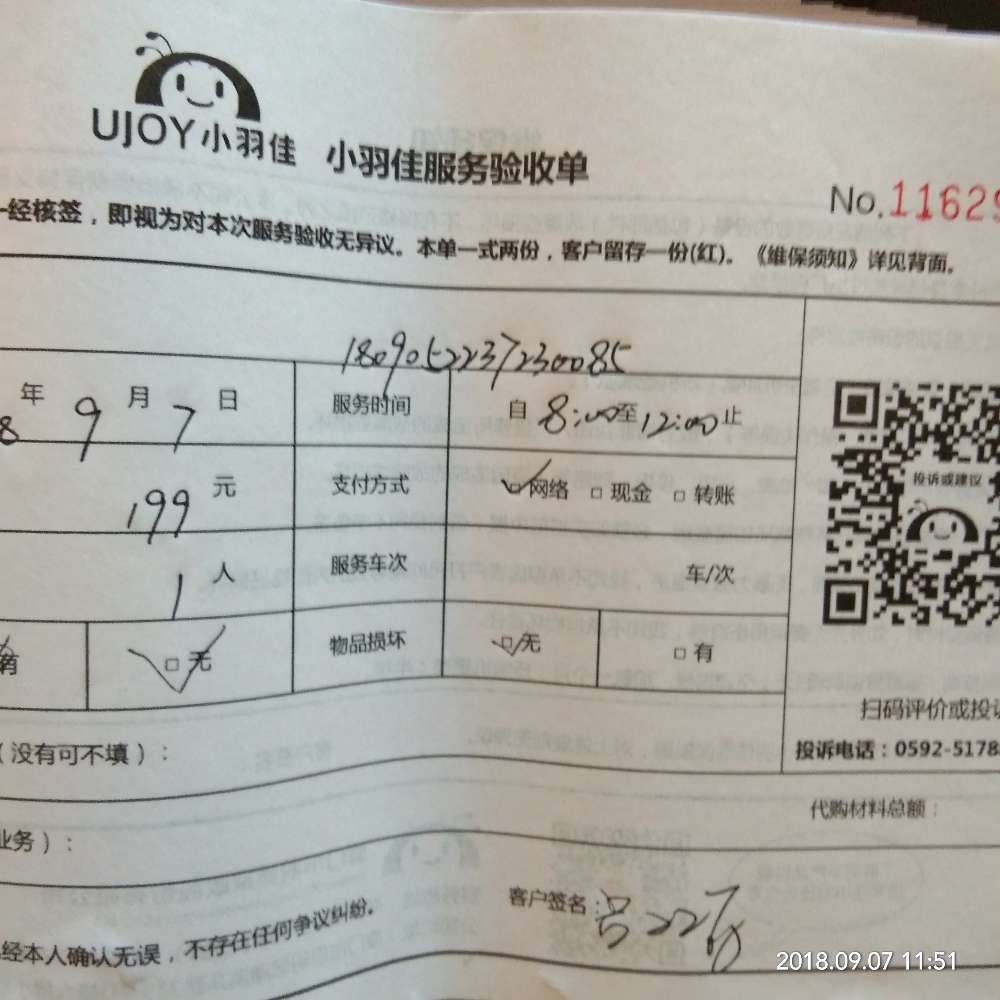 UJOY小羽佳 小羽佳服务验收单
No.11629
一经核签，即视为对本次服务验收无异议。本单一式两份，客户留存一份(红)。《维保须知》详见背面。
1809052237230085
8年9月7日 服务时间 自8:00至12:00止
199元 支付方式 □网络 □现金 □转账
投诉或建议
1人 服务车次 车/次
□无 物品损坏 □无 □有
扫码评价或投诉
(没有可不填)：
投诉电话：0592-5178
代购材料总额：
业务)：
客户签名：
经本人确认无误，不存在任何争议纠纷。
2018.09.07 11:51